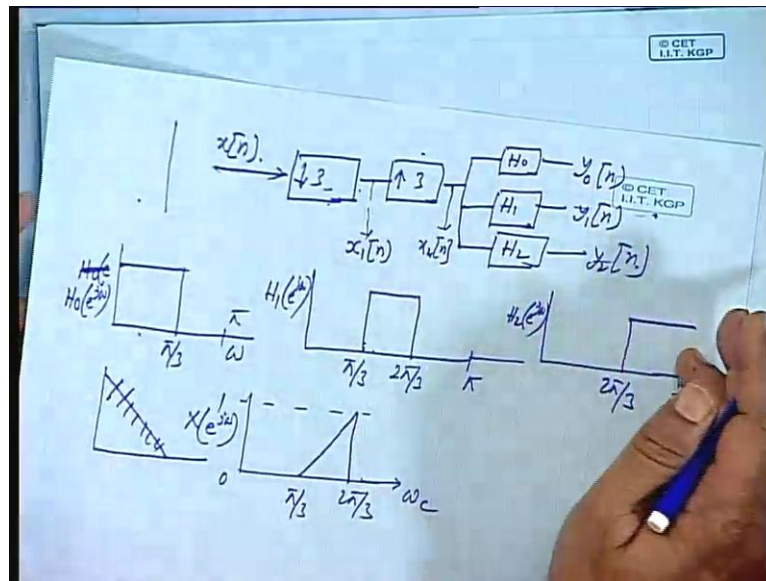 © CET
I.I.T. KGP
x[n].
↓3
↑3
H0
y0[n]
© CET
I.I.T. KGP
H1
y1[n]
x1[n]
x2[n]
H2
y2[n]
H0(e^jω)
π/3
π
ω
H1(e^jω)
π/3
2π/3
π
H2(e^jω)
2π/3
X(e^jω)
1
0
π/3
2π/3
ωc